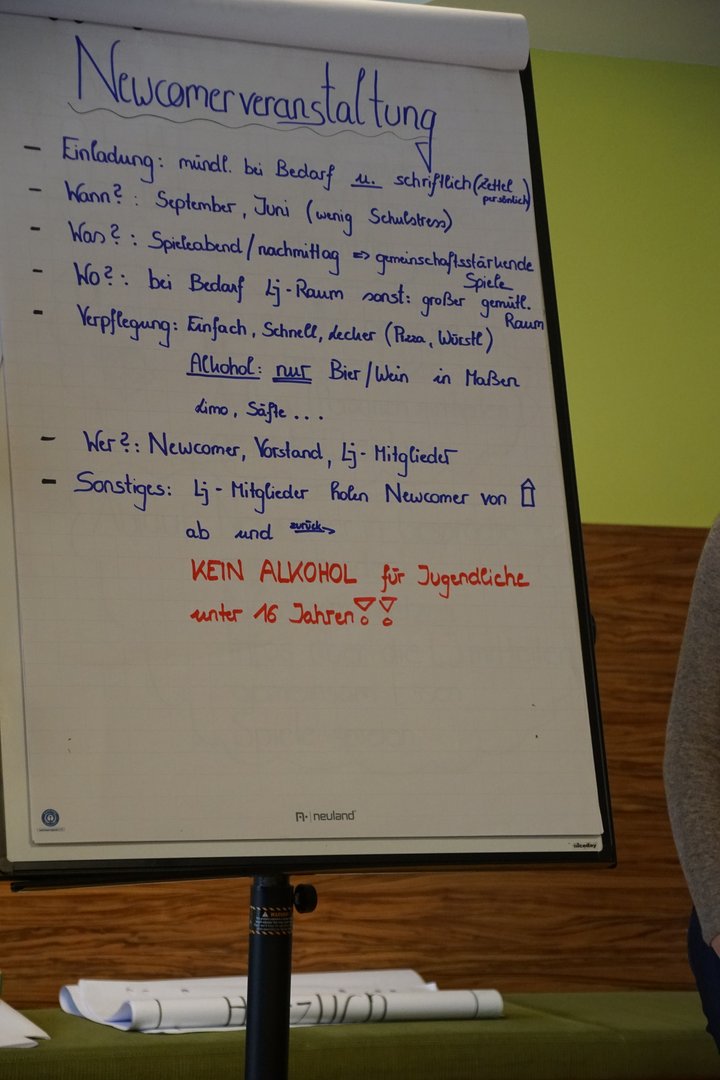 Newcomerveranstaltung
- Einladung: mündl. bei Bedarf u. schriftlich (Zettel persönlich)
- Wann?: September, Juni (wenig Schulstress)
- Was?: Spieleabend/nachmittag => gemeinschaftsstärkende
Spiele
- Wo?: bei Bedarf Lj-Raum sonst: großer gemütl.
Raum
- Verpflegung: Einfach, Schnell, Lecker (Pizza, Würstl)
Alkohol: nur Bier/Wein in Maßen
Limo, Säfte...
- Wer?: Newcomer, Vorstand, Lj-Mitglieder
- Sonstiges: Lj-Mitglieder holen Newcomer von
ab und zurück
KEIN ALKOHOL für Jugendliche
unter 16 Jahren!!
neuland
niceday
WARNING